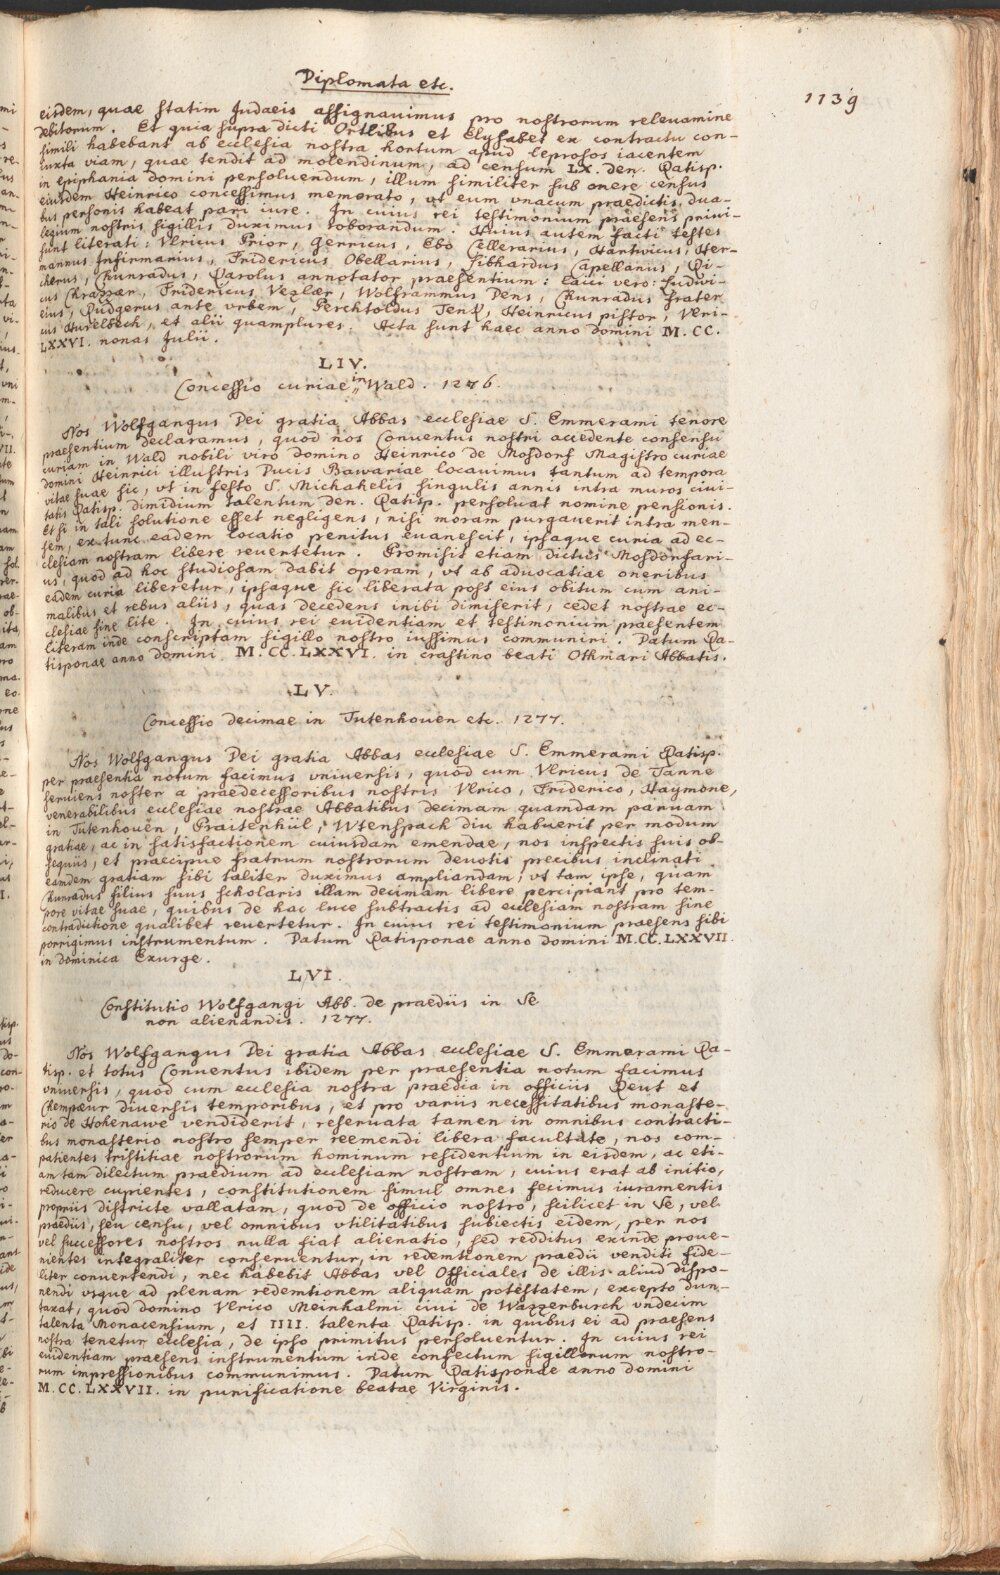 Diplomata etc.
1139
eisdem, quae statim Judaeis assignauimus pro nostrorum releuamine
debitorum. Et quia supra dicti Ortlibus et Elysabet ex contractu con-
simili habebant ab ecclesia nostra hortum apud leprosos iacentem
iuxta viam, quae tendit ad molendinum, ad censum LX. den. Ratisp.
in epiphania domini persoluendum, illum similiter sub onere census
eiusdem Heinrico concessimus memorato, vt eum vnacum praedictis dua-
bus personis habeat pari iure. In cuius rei testimonium praesens priui-
legium nostris sigillis duximus roborandum. Huius autem facti testes
sunt literati: Vlricus Prior, Gerricus, Ebo Cellerarius, Hartwicus, Her-
mannus Infirmarius, Fridericus Obellarius, Sibhardus Capellanus, Ri-
cherus, Chunradus, Carolus annotator praesentium: laici vero: Ludwi-
cus Chrazzer, Fridericus Vezlaer, Wolframmus Dens, Chunradus frater
eius, Rudgerus ante vrbem, Perchtoldus Jenl, Heinricus pistor, Vlri-
cus Hurelbech, et alii quamplures. Acta sunt haec anno domini M. CC.
LXXVI. nonas Julii.
LIV.
Concessio curiae in Wald. 1276.
Nos Wolfgangus Dei gratia Abbas ecclesiae S. Emmerami tenore
praesentium declaramus, quod nos Conuentus nostri accedente consensu
curiam in Wald nobili viro domino Heinrico de Mosdorf Magistro curiae
domini Heinrici illustris Ducis Bawariae locauimus tantum ad tempora
vitae suae sic, vt in festo S. Michahelis singulis annis intra muros ciui-
tatis Ratisp. dimidium talentum den. Ratisp. persoluat nomine pensionis.
Et si in tali solutione esset negligens, nisi moram purgauerit intra men-
sem, ex tunc eadem locatio penitus euanescit, ipsaque curia ad ec-
clesiam nostram libere reuertetur. Promisit etiam dictus Mosdorfari-
us, quod ad hoc studiosam dabit operam, vt ab aduocatiae oneribus
eadem curia liberetur, ipsaque sic liberata post eius obitum cum ani-
malibus et rebus aliis, quas decedens inibi dimiserit, cedet nostrae ec-
clesiae sine lite. In cuius rei euidentiam et testimonium praesentem
literam inde conscriptam sigillo nostro iussimus communiri. Datum Ra-
tisponae anno domini M. CC. LXXVI. in crastino beati Othmari Abbatis.
LV.
Concessio decimae in Tutenhouen etc. 1277.
Nos Wolfgangus Dei gratia Abbas ecclesiae S. Emmerami Ratisp.
per praesentia notum facimus vniuersis, quod cum Vlricus de Tanne
seruiens noster a praedecessoribus nostris Vlrico, Friderico, Haymone,
venerabilibus ecclesiae nostrae Abbatibus decimam quamdam paruam
in Tutenhouen, Praitenhül, Wtenspach diu habuerit per modum
gratiae, ac in satisfactionem cuiusdam emendae, nos inspectis suis ob-
sequiis, et praecipue fratrum nostrorum deuotis precibus inclinati
eamdem gratiam sibi taliter duximus ampliandam, vt tam ipse, quam
Chunradus filius suus scholaris illam decimam libere percipiant pro tem-
pore vitae suae, quibus de hac luce subtractis ad ecclesiam nostram sine
contradictione qualibet reuertetur. In cuius rei testimonium praesens sibi
porrigimus instrumentum. Datum Ratisponae anno domini M.CC.LXXVII.
in dominica Exurge.
LVI.
Constitutio Wolfgangi Abb. de praediis in Se
non alienandis. 1277.
Nos Wolfgangus Dei gratia Abbas ecclesiae S. Emmerami Ra-
tisp. et totus Conuentus ibidem per praesentia notum facimus
vniuersis, quod cum ecclesia nostra praedia in officiis Reut et
Chempaeur diuersis temporibus, et pro variis necessitatibus monaste-
rio de Hohenawe vendiderit, reseruata tamen in omnibus contracti-
bus monasterio nostro semper reemendi libera facultate, nos com-
patientes tristitiae nostrorum hominum residentium in eisdem, ac eti-
am tam dilectum praedium ad ecclesiam nostram, cuius erat ab initio,
reducere cupientes, constitutionem simul omnes fecimus iuramentis
propriis districte vallatam, quod de officio nostro, scilicet in Se, vel
praediis, seu censu, vel omnibus vtilitatibus subiectis eidem, per nos
vel successores nostros nulla fiat alienatio, sed redditus exinde proue-
nientes integraliter conseruentur, in redemtionem praedii venditi fide-
liter conuertendi, nec habebit Abbas vel Officiales de illis aliud dispo-
nendi vsque ad plenam redemtionem aliquam potestatem, excepto dun-
taxat, quod domino Vlrico Meinhalmi ciui de Wazzerburch vndecim
talenta Monacensium, et IIII. talenta Ratisp. in quibus ei ad praesens
nostra tenetur ecclesia, de ipso primitus persoluentur. In cuius rei
euidentiam praesens instrumentum inde confectum sigillorum nostro-
rum impressionibus communimus. Datum Ratisponae anno domini
M. CC. LXXVII. in purificatione beatae Virginis.